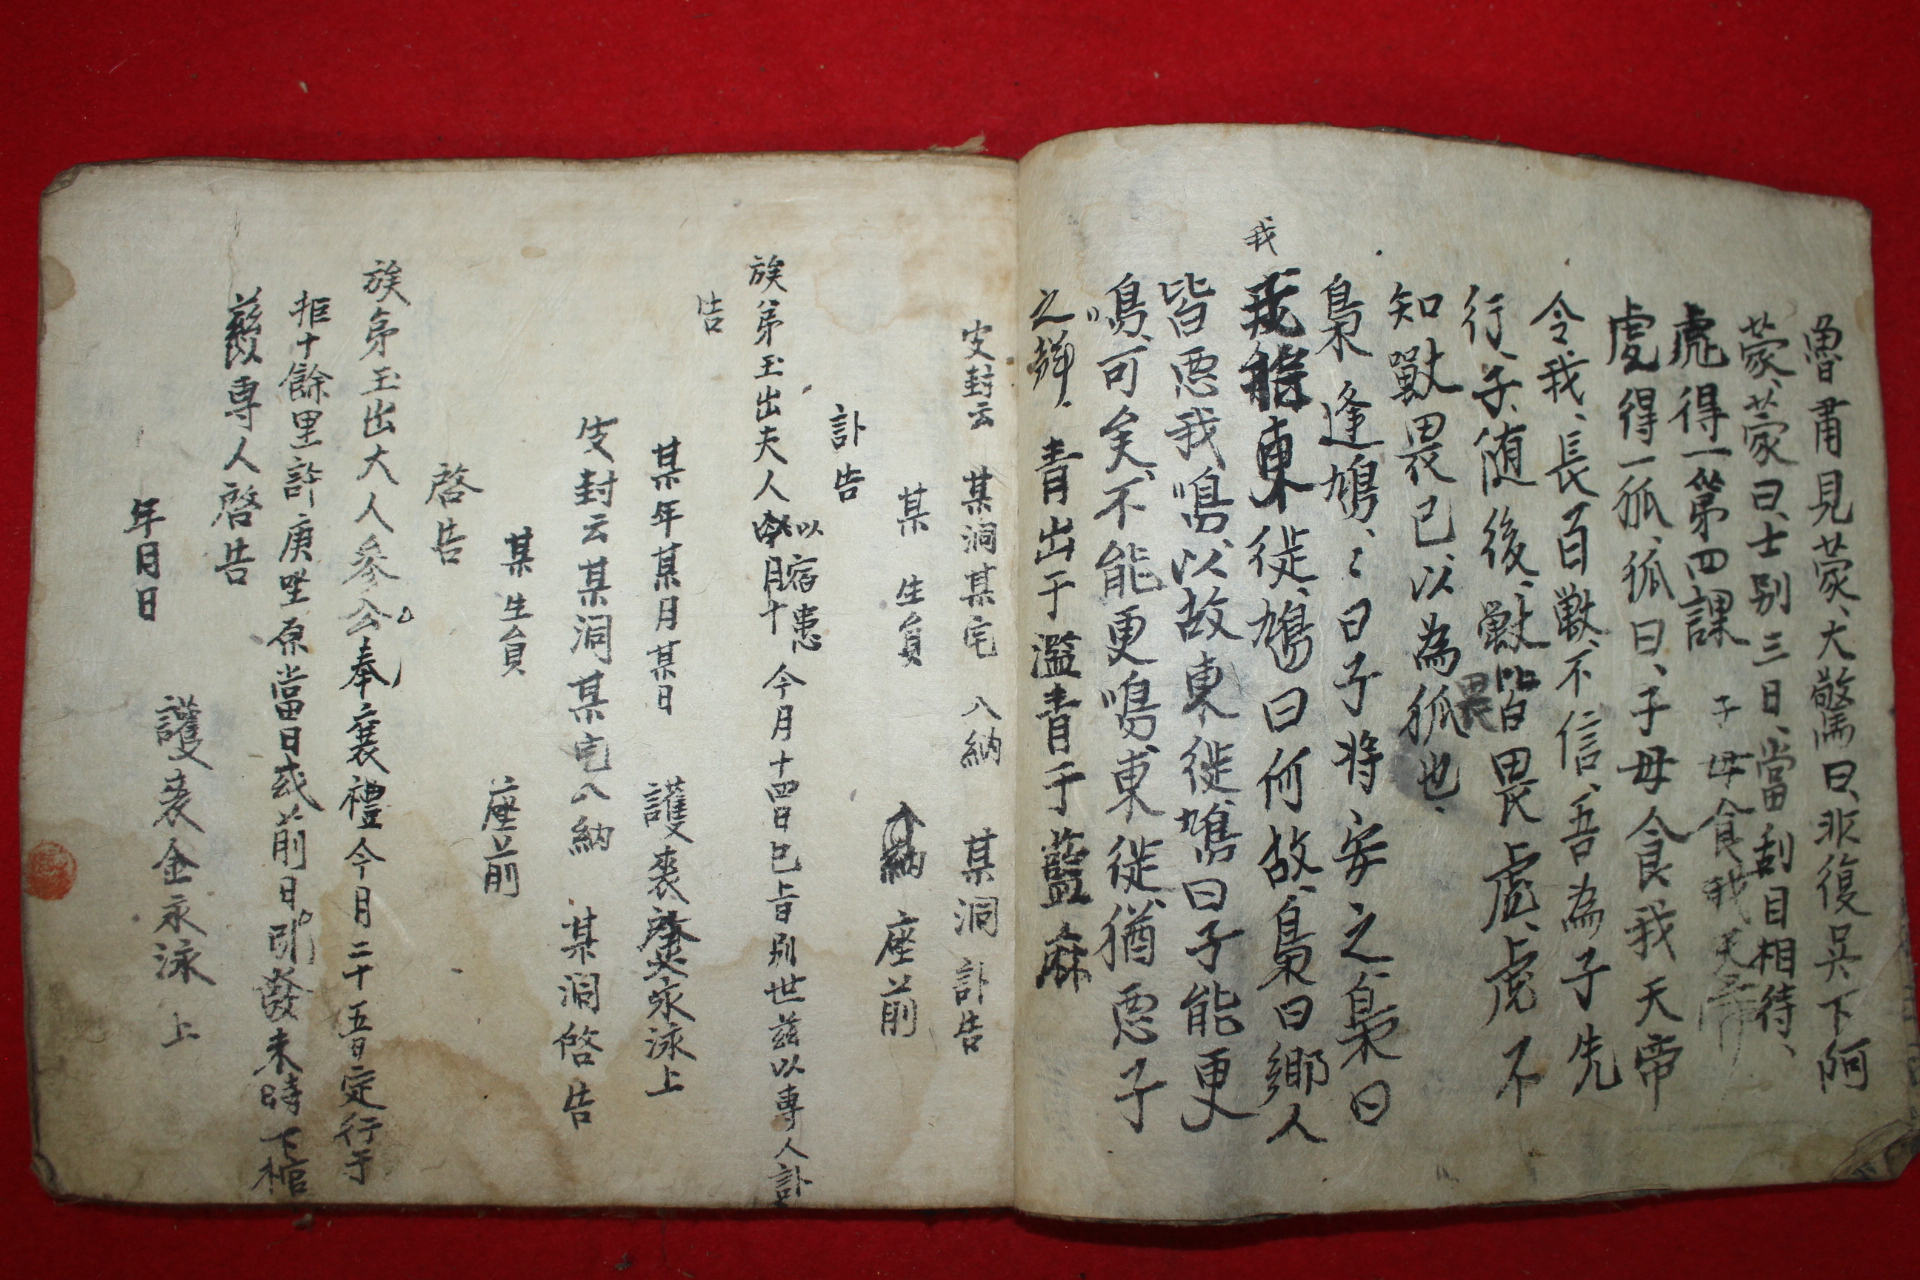 魯肅見蒙、大驚曰、非復吳下阿
蒙、蒙曰、士別三日、當刮目相待、
虎得一第四課 子母食我天帝
虎得一狐、狐曰、子母食我天帝
令我、長百獸、不信、吾為子先
行、子、随後、獸皆畏虎、虎不
畏
知獸畏己、以為狐也、
梟逢鳩、鳩ミ曰子將、安之、梟曰
我
東徙、鳩曰何故、梟曰鄉人
皆惡我鳴、以故東徙、鳩曰子能更
鳴、可矣、不能更鳴東徙、猶惡子
之 青出于濫青于藍麻
皮封云 某洞某宅 入納 某洞訃告
某 生員 入納 座前
訃告
族弟玉出夫人 以宿患 今月十四日巳時別世茲以專人訃
告
某年某月某日 護喪 永泳上
皮封云某洞某宅入納 某洞啓告
某生員 座前
啓告
族弟玉出大人參公奉襄禮今月二十五日定行于
距十餘里許庚坐原當日或前日 發未時下棺
專人啓告
年月日
護喪金永泳上